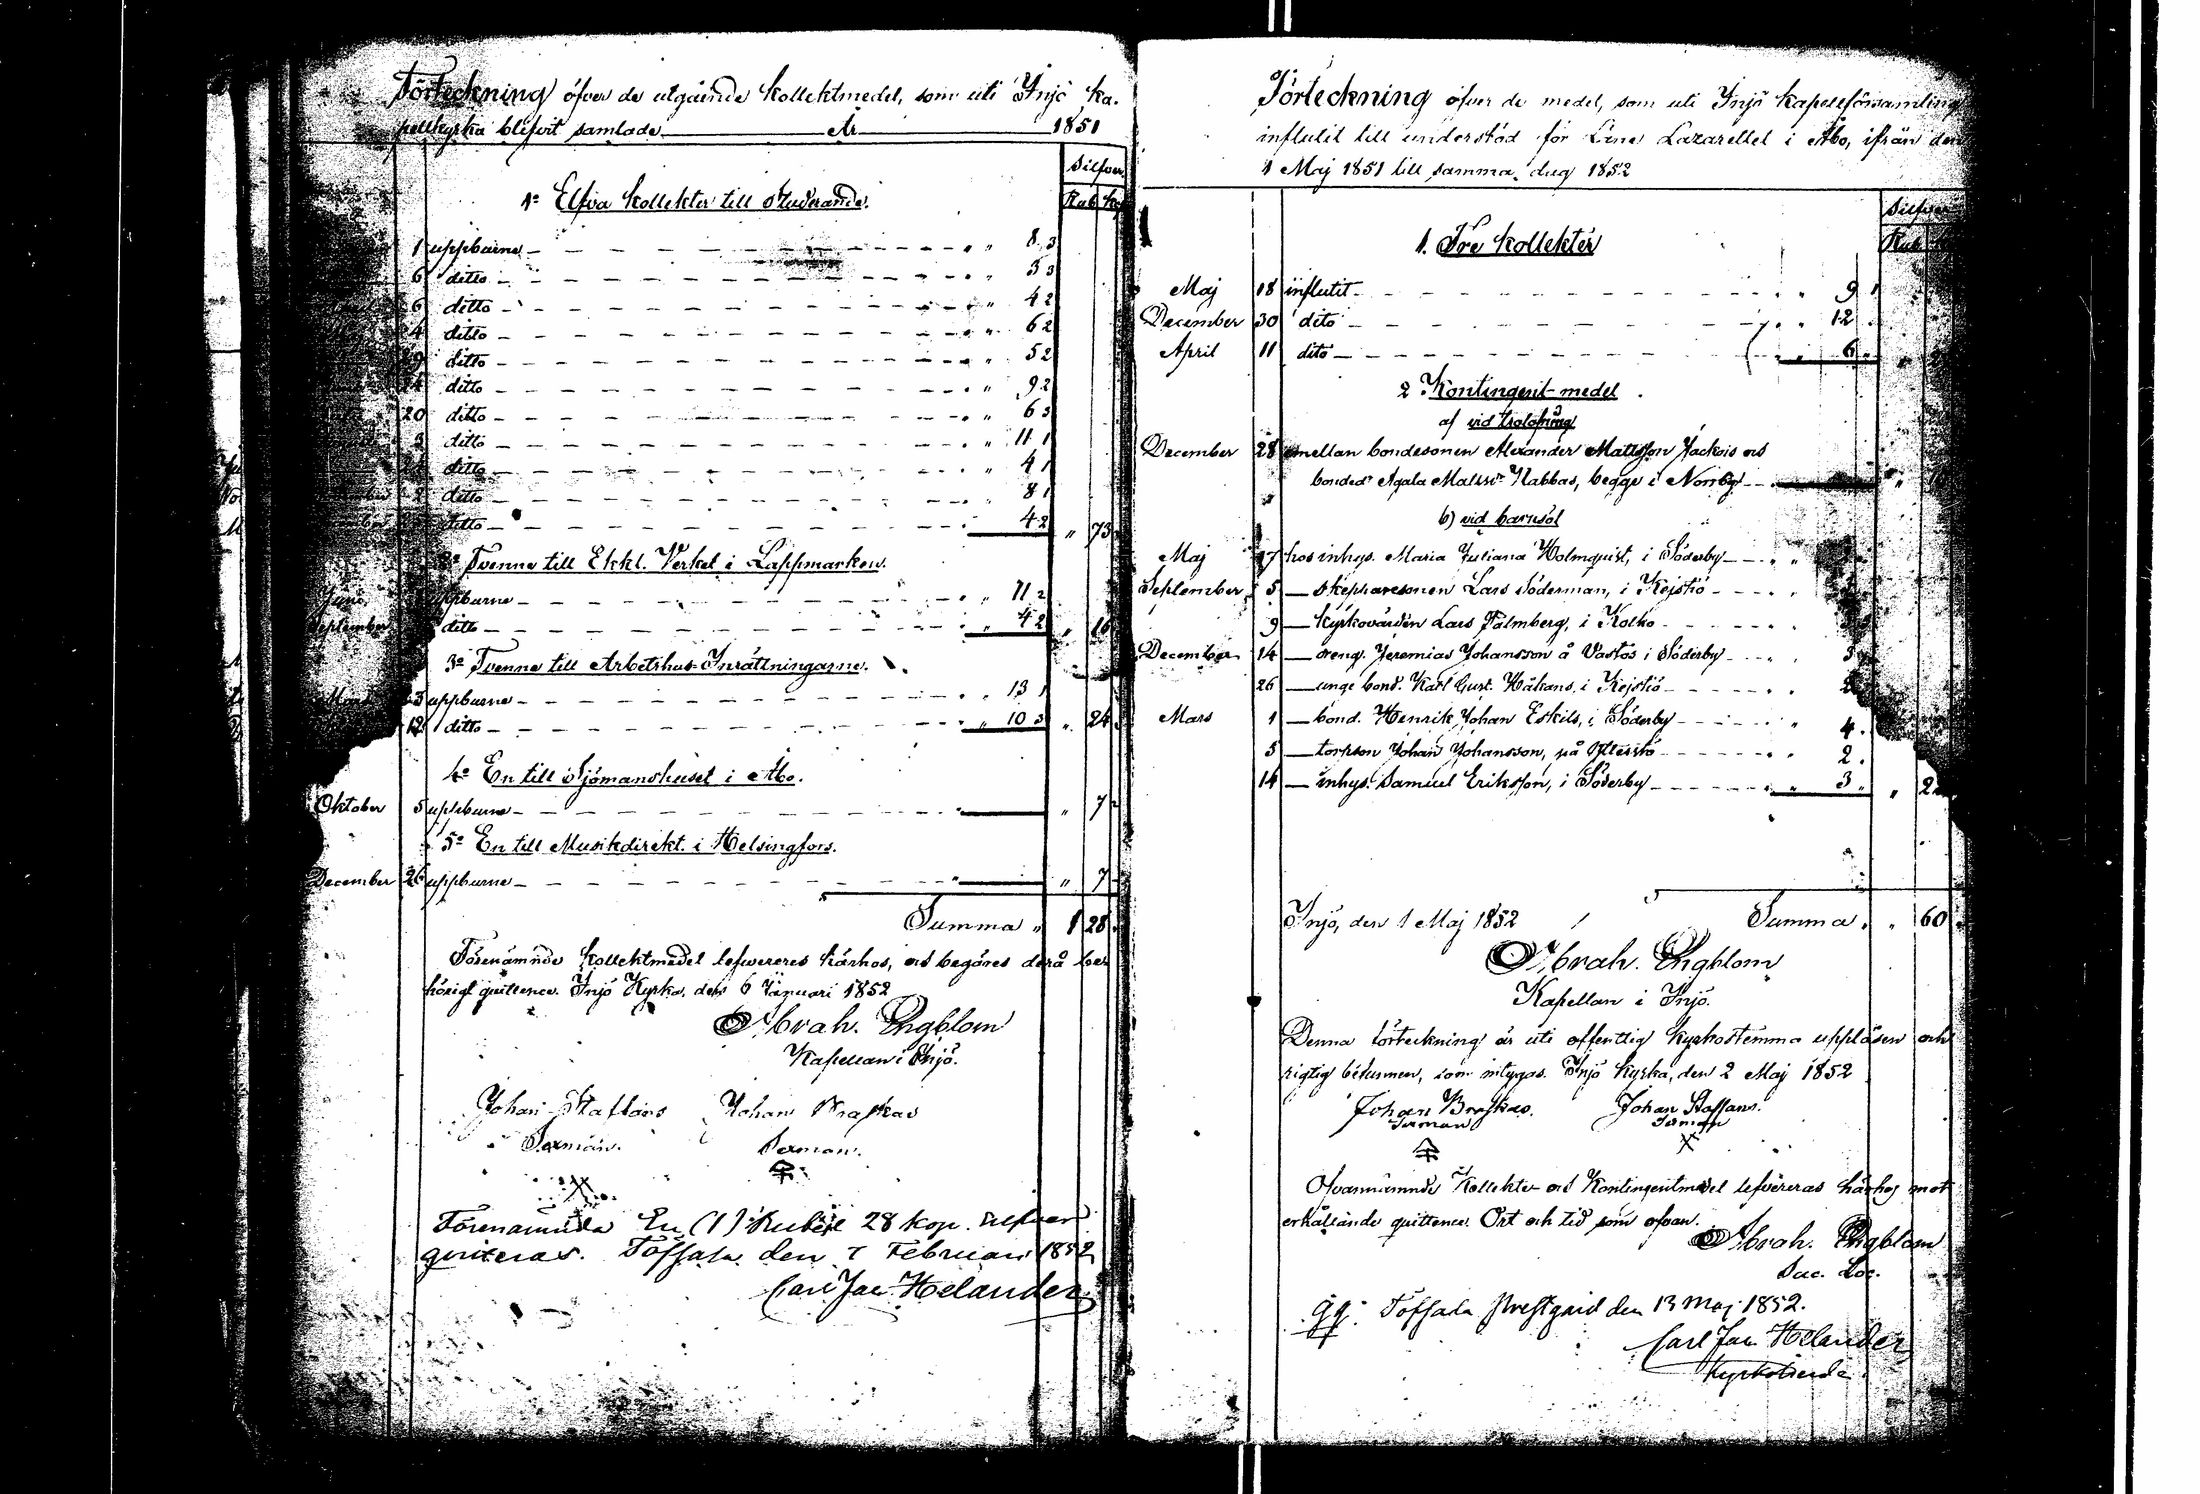 Förteckning öfver de utgående kollektmedel, som uti Injö ka-
pellkyrka blifvit samlade År 1851
Silfver
Rub. Kop
1o Elfva kollekter till studerande.
1 uppburne 8
6 ditto 5
6 ditto 4 2
4 ditto 6 2
ditto 5 2
ditto 9 2
20 ditto 6
ditto 11 1
ditto 4 1
ditto 8 1
ditto 4 2 " 73
Tvenne till Ekkl. Verket i Lappmarken.
Juni uppburne 11 2
September ditto 4 2 " 16
3o Tvenne till Arbetshus-Inrättningarne.
uppburne 13 1
12 ditto 10 3 " 24
4o En till Sjömanshuset i Åbo.
Oktober 5 uppburne " 7
5o En till Musikdirekt. i Helsingfors.
December 26 uppburne " 7
Summa " 1 28
Förenämnde kollektmedel lefvereres härhos, och begäres derå be-
hörigt quittence. Injö Kyrka, den 6 Januari 1852
Abrah. Engblom
Kapellan i Injö.
Johan Staffans Johan Braskas
Sexman. Sexman.
Förenämnda En (1) Rubel 28 kop. silfver
quiteras. Töfsala den 7 Februari 1852
Carl Jac Helander
Förteckning öfver de medel, som uti Injö kapellförsamling
influtit till understöd för Läne Lazarettet i Åbo, ifrån den
1 Maj 1851 till samma dag 1852
Silfver
Rub.
1. Tre kollekter
Maj 18 influtit 9
December 30 dito 12
April 11 dito 6
2 Kontingent-medel
a) vid trolofning
December 28 emellan bondesonen Alexander Mattsson Jackois och
bonded. Agata Matsdr Nabbas, begge i Norrby
b) vid barnsöl
Maj 17 hos inhys. Maria Juliana Holmquist, i Söderby
September 5 — skepparesonen Lars Söderman, i Kejstiö
9 — kyrkovärden Lars Palmberg, i Kolko
December 14 — dreng. Jeremias Johansson å Vastös i Söderby 3
26 — unge bond. Karl Gust. Håkans, i Kejstiö
Mars 1 — bond. Henrik Johan Eskils, i Söderby 4
5 — torpson Johan Johansson, på 2
14 — inhys. Samuel Eriksson, i Söderby 3
Injö, den 1 Maj 1852 Summa " 60
Abrah. Engblom
Kapellan i Injö.
Denna förteckning är uti offentlig kyrkostämma uppläsen och
rigtig befunnen, som intygas. Injö kyrka, den 2 Maj 1852
Johan Braskas. Johan Staffans.
Sexman Sexman
Ofvannämnde Kollekter och Kontingentmedel lefvereras härhos mot
erhållande quittence. Ort och tid som ofvan.
Abrah. Engblom
Sac. Loc.
Töfsala Prestgård den 13 Maj 1852.
Carl Jac Helander
Kyrkoherde